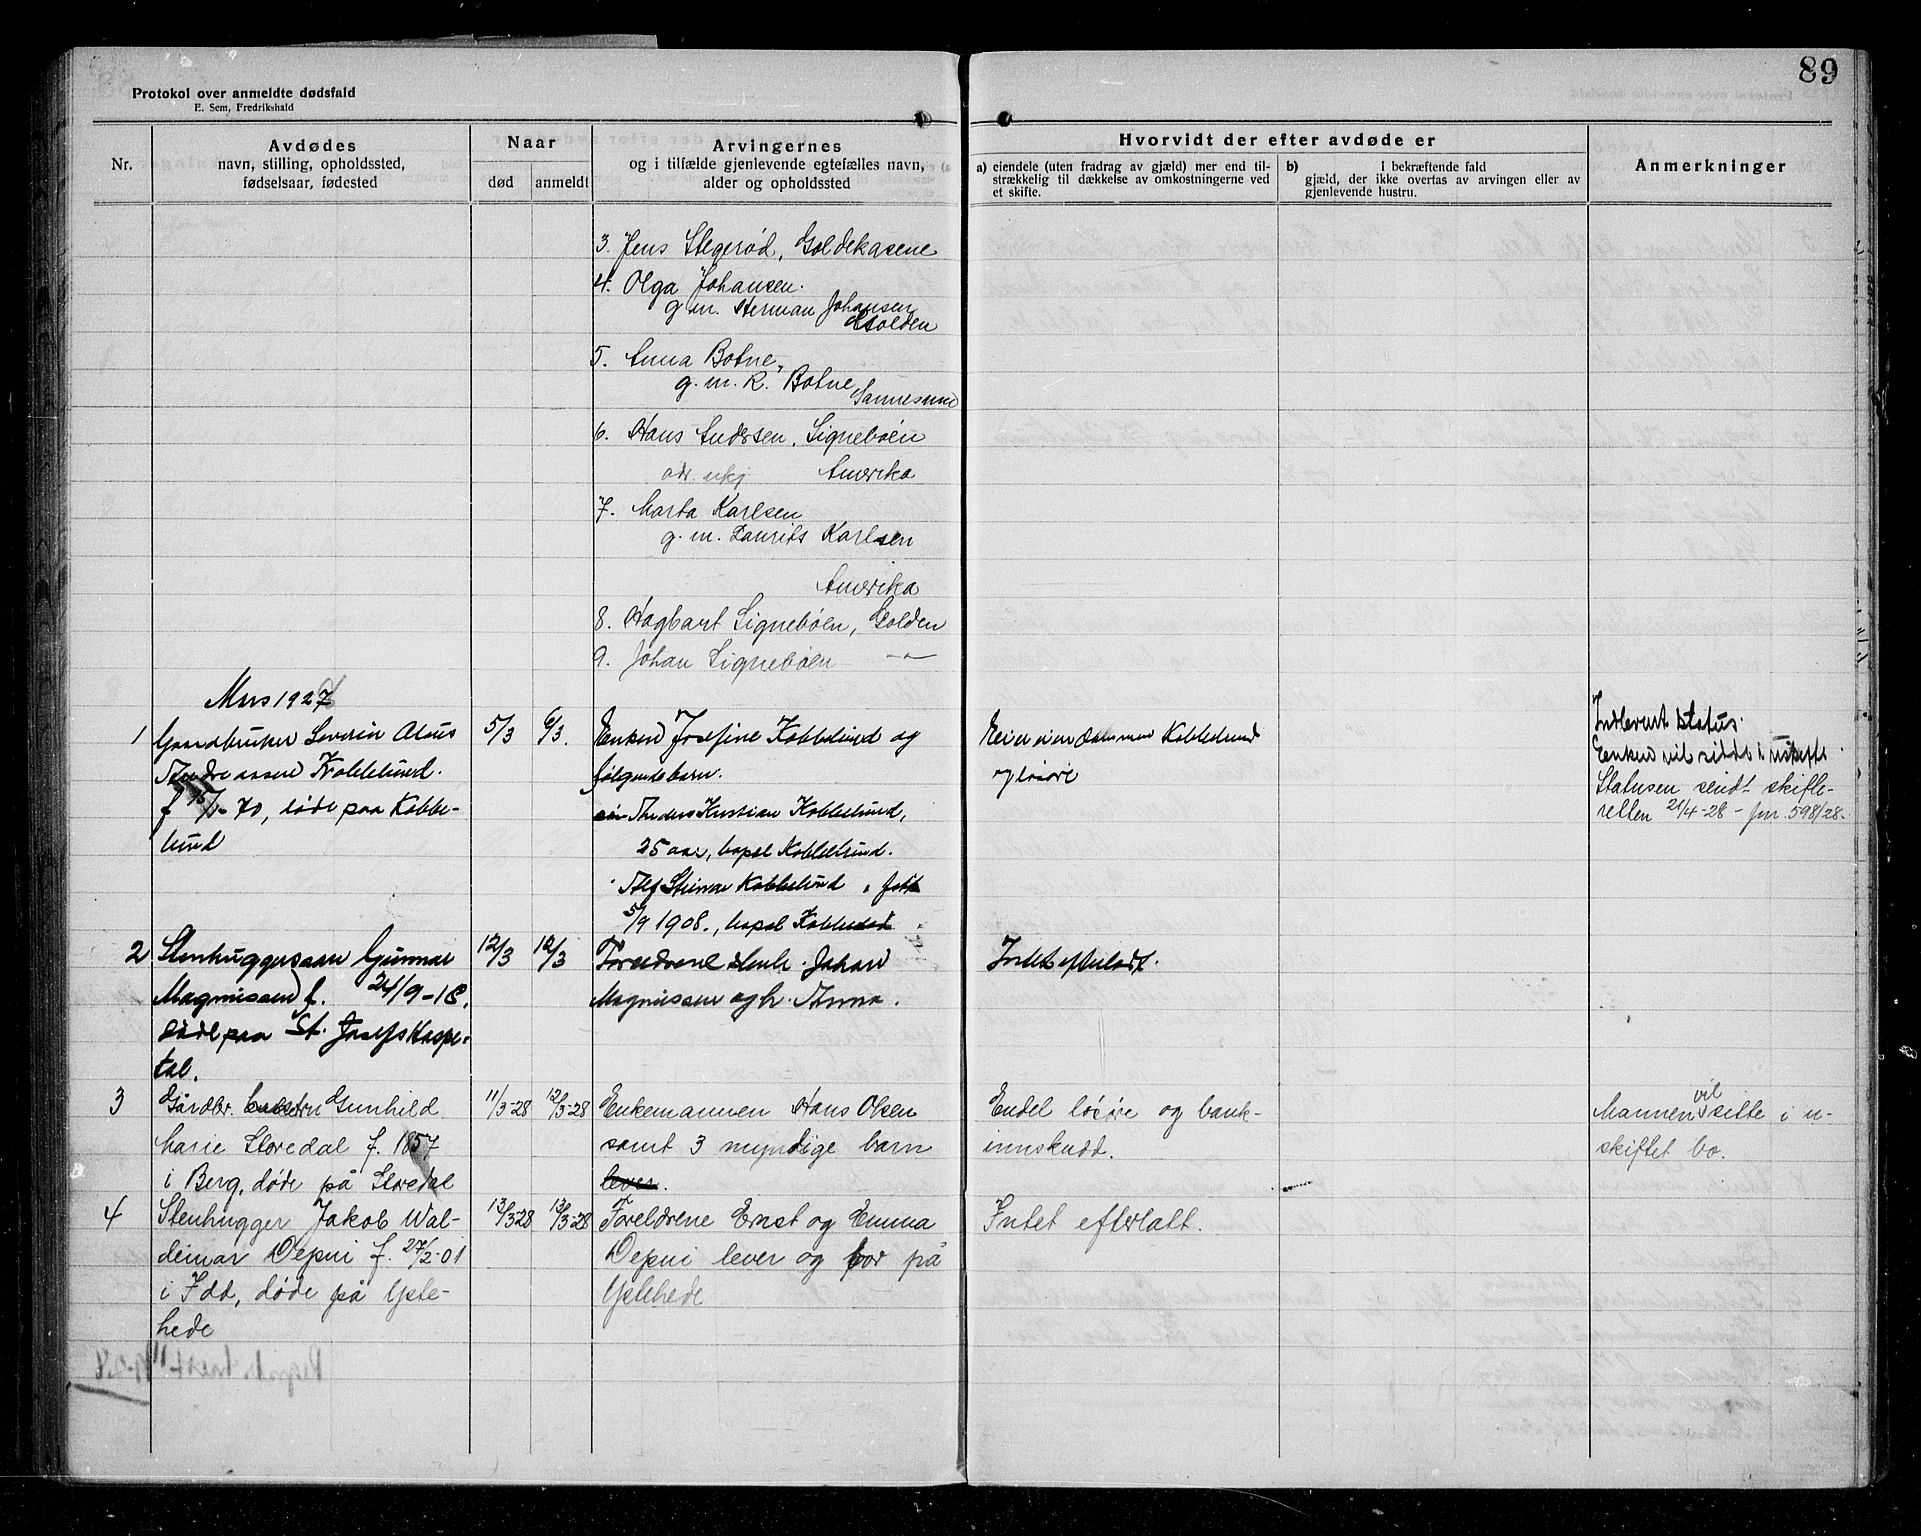 89
Protokol over anmeldte dødsfald
E. Sem, Fredrikshald
Nr.
Avdødes
navn, stilling, opholdssted,
fødselsaar, fødested
Naar
død
anmeldt
Arvingernes
og i tilfælde gjenlevende egtefælles navn,
alder og opholdssted
Hvorvidt der efter avdøde er
a) eiendele (uten fradrag av gjæld) mer end til-
strækkelig til dækkelse av omkostningerne ved
et skifte.
b) I bekræftende fald
gjæld, der ikke overtas av arvingen eller av
gjenlevende hustru.
Anmerkninger
3. Jens Stegerød, Goldekasene
4. Olga Johansen.
g. m. Herman Johansen
Holden
5. Anna Botne,
g. m. R. Botne
Sannesund
6. Hans Andersen, Signebøen
adr. ukj Amerika
7. Marta Karlsen
g. m. Laurits Karlsen
Amerika
8. Hagbart Signebøen,
9. Johan Signebøen —"—
Mars 1927
1 Gaardbruker Severin Olaus
Andreassen Kobbelund.
f 15/ - 70, døde paa Kobbe-
lund
5/3 6/3.
Enken Josefine Kobbelund og
følgende barn.
Anders Kristian Kobbelund,
25 aar, bopæl Kobbelund.
Alf Steinar Kobbelund, født
5/9 1908., bopæl Kobbelund
Eier eiendommen Kobbelund
og løsøre
Indlevert status.
Enken vil sidde i uskifte
Statusen sendt skifte-
retten 21/4-28 - jnr. 598/28.
2 Stenhuggersøn Gunnar
Magnussen f. 24/9-18,
døde paa St. Josefs Hospi-
tal.
12/3 12/3
Forældrene stenh. Johan
Magnussen og h. Anna.
Intet efterladt.
3 Gårdbr. Gunhild
Marie Storedal f. 1857
i Berg, døde på Storedal
11/3-28 12/3-28
Enkemannen Hans Olsen
samt 3 myndige barn
lever.
Endel løsøre og bank-
innskudd.
Mannen vil sitte i u-
skiftet bo.
4 Stenhugger Jakob Wal-
demar Depui f. 27/2-01
i Idd, døde på Yste-
hede
13/3 28 13/3-28
Foreldrene Ernst og Emma
Depui lever og bor på
Ystehede
Intet efterlatt.